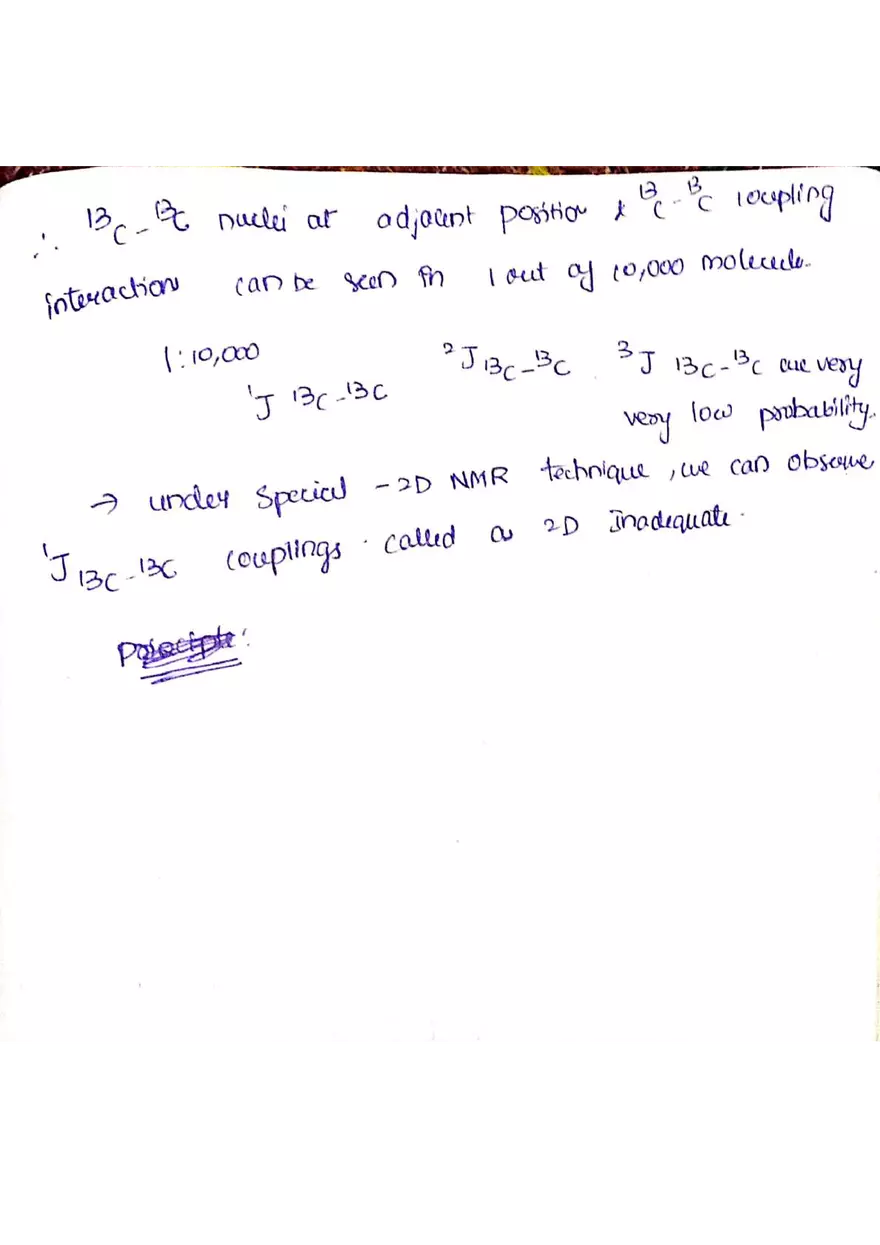 ∴ ¹³C-¹³C nuclei at adjacent position & ¹³C-¹³C coupling
interaction can be seen in 1 out of 10,000 molecule.
1:10,000
¹J ¹³C-¹³C ²J ¹³C-¹³C ³J ¹³C-¹³C are very
very low probability.
→ under special - 2D NMR technique, we can observe
¹J ¹³C-¹³C couplings. called as 2D Inadequate.